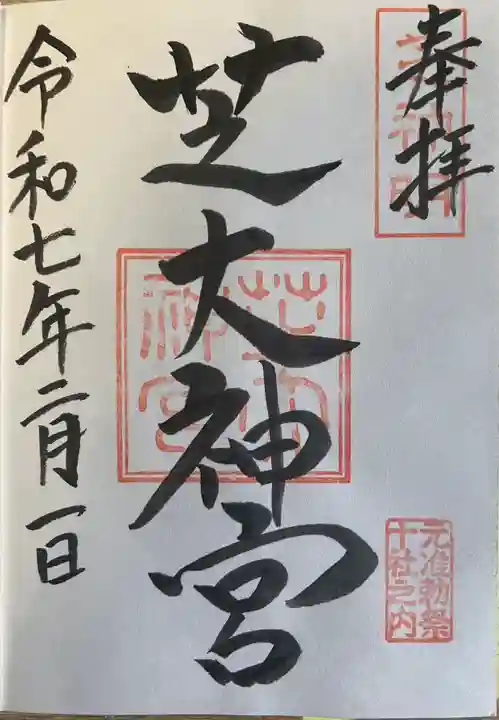 奉拝
芝神明
元准勅祭
十社之内
芝大神宮
芝大神宮
令和七年二月一日